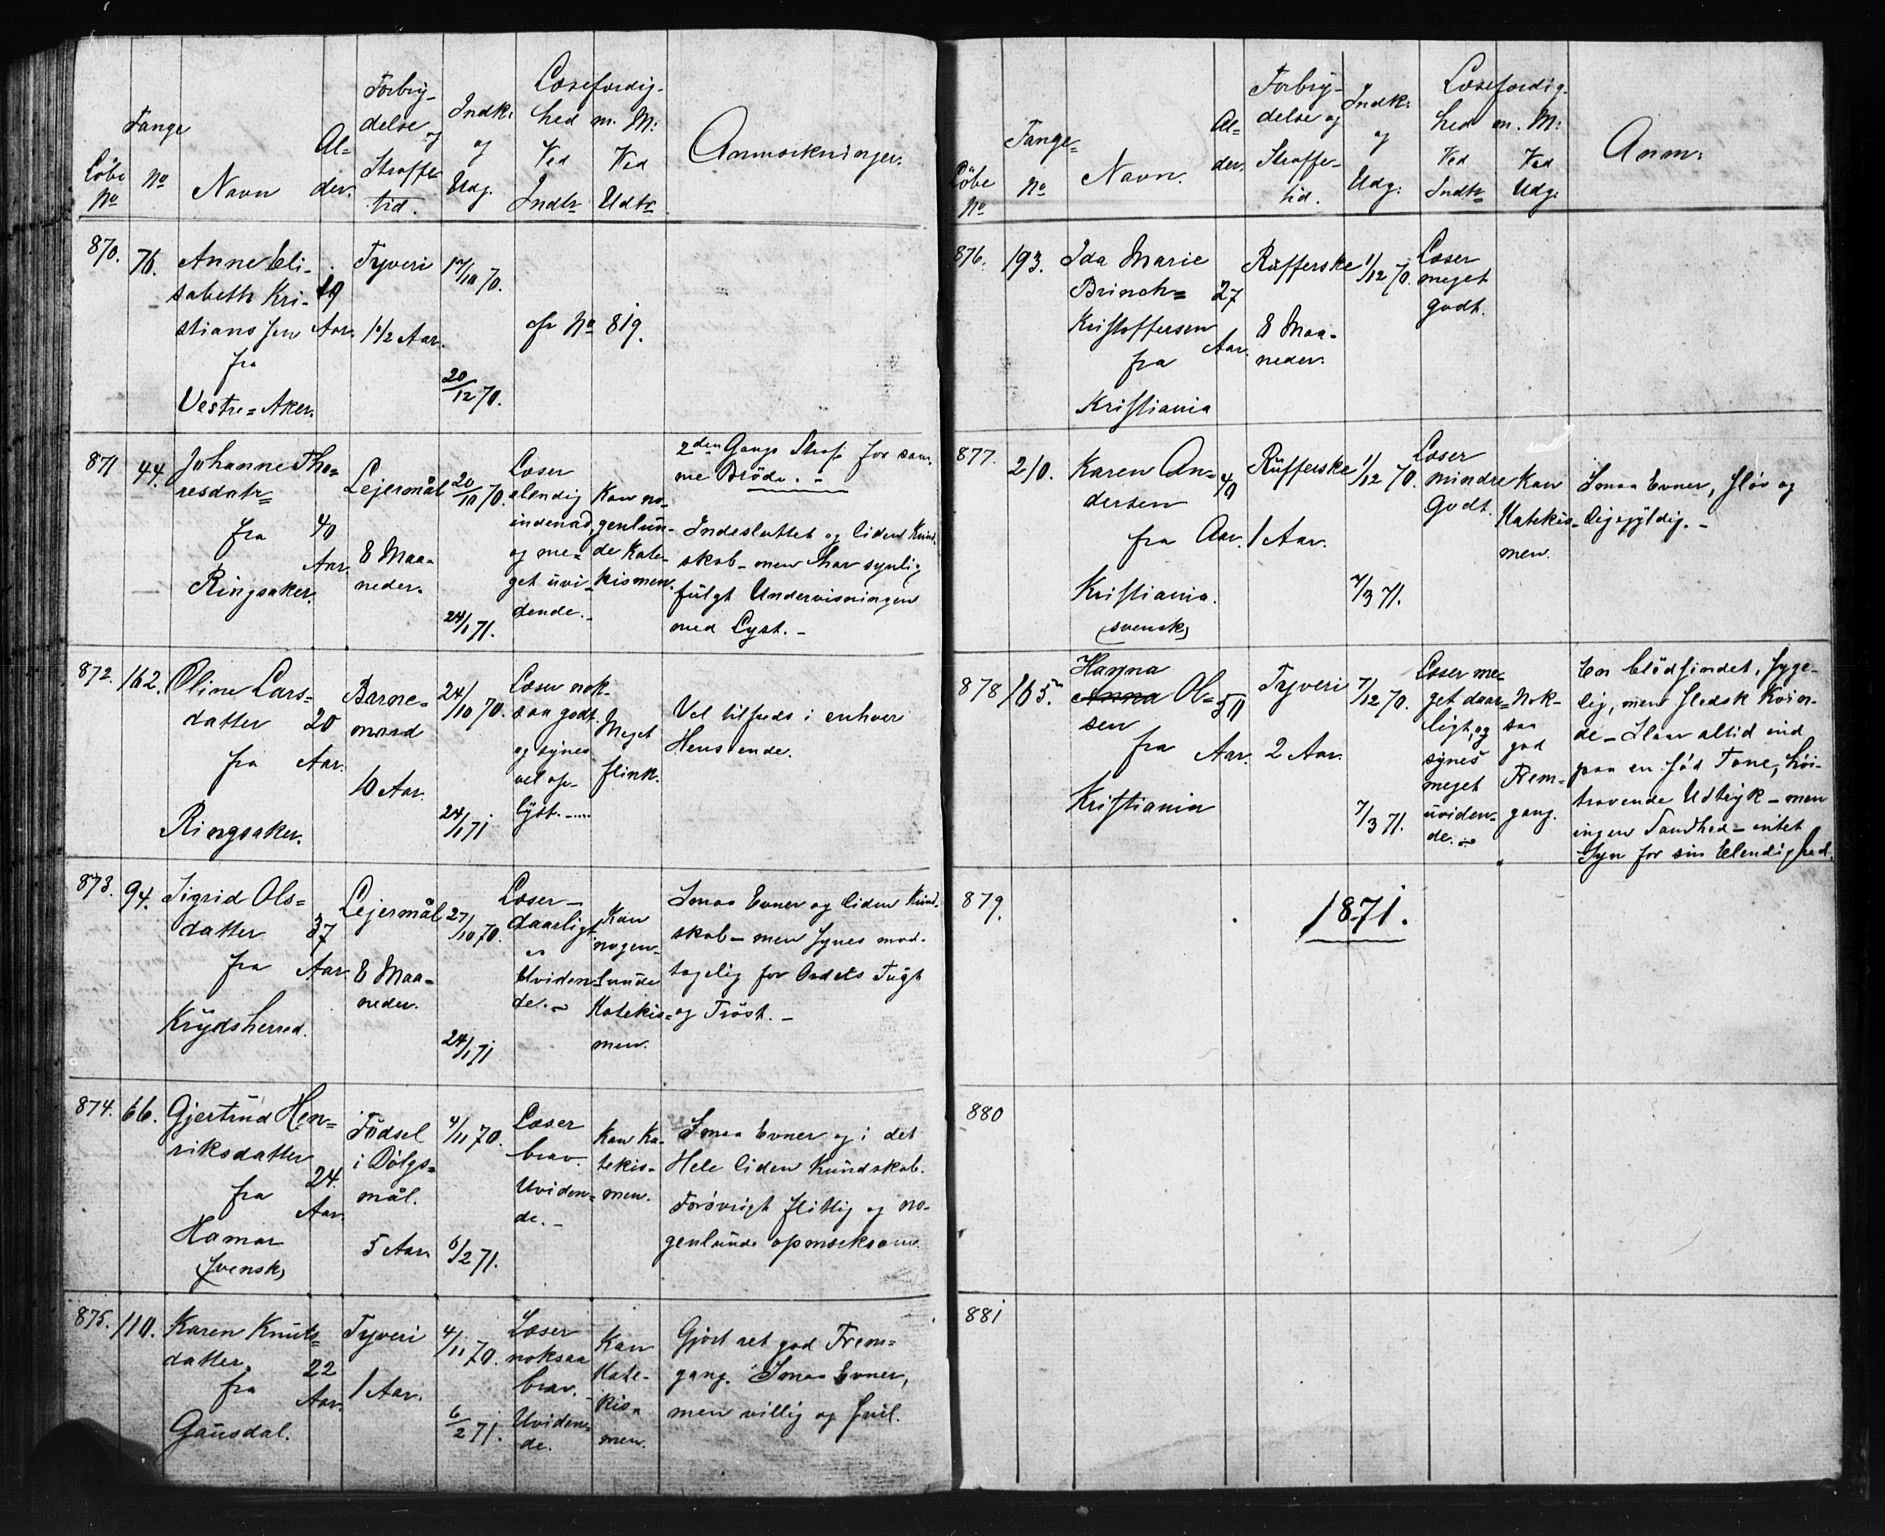 Løbe No
Fange No
Navn
Alder.
Forbrydelse og Straffetid.
Indk: og Udg.
Læsefærdighed m. M:
Ved Indtr
Ved Udtr
Anmærkninger.
870.
76.
Anne Eli-
sabeth Kri-
stiansen
fra
Vestre=Aker.
19
Aar.
Tyveri
1 1/2 Aar.
17/10 70.
20/12 70.
cfr No 819.
871
44.
Johanne Tho=
resdatr=
fra
Ringsaker.
40
Aar.
Lejermål
8 Maa=
neder.
20/10 70.
24/1 71.
Læser
elendig
indenad,
og me=
get uvi-
dende. -
Kan no-
genlun-
de Kate-
kismen.
2den Gangs Straf for sam-
me Bröde. -
Indesluttet og liden Kund-
skab - men har synlig
fulgt Undervisningen
med Lyst. -
872.
162.
Oline Lars-
datter
fra
Ringsaker.
20
Aar.
Barne-
mord
10 Aar.
24/10 70.
24/1 71
Læser nok-
saa godt
og synes
vel op-
lyst. -
Meget
flink.
Vel tilfreds i enhver
Henseende.
873.
94.
Sigrid Ols=
datter
fra
Krydsherred.
37
Aar.
Lejermål
8 Maa=
neder.
27/10 70.
24/1 71
Læser -
daarligt
Uviden-
de. -
Kan
nogen-
lunde
Katekis=
men.
Smaa Evner og liden Kund-
skab - men synes mod-
tagelig for Ordets Tugt
og Tröst. -
874.
66.
Gjertrud Hen=
riksdatter
fra
Hamar
(svensk)
24.
Aar.
Födsel
i Dølgs=
mål.
5 Aar.
4/11 70.
6/2 71.
Læser
brav.
Uviden=
de. -
Kan Ka-
tekis-
men.
Smaa Evner og i det
Hele liden Kundskab.
Forøvrigt flittig og no-
genlunde opmærksom.
875.
110.
Karen Knuts=
datter.
fra
Gausdal.
22
Aar.
Tyveri
1 Aar.
4/11 70.
6/2 71.
Læser
noksaa
brav. -
Uviden=
de.
Kan
Kate-
kis-
men.
Gjort ret god Frem=
gang. Smaa Evner,
men villig og snil.
Løbe No
Fange= No
Navn.
Al=
der.
Forbry-
delse og
Straffe-
tid.
Indk:
og
Udg:
Læsefærdig-
hed m. M:
Ved Indtr
Ved Udg.
Anm:
876.
193.
Ida Marie
Brinch=
Kristoffersen
fra
Kristiania
27
Aar.
Rufferske
8 Maa-
neder.
1/12 70.
Læser
meget
godt.
877.
210.
Karen An-
dersen
fra
Kristiania.
(svensk)
40
Aar.
Rufferske
1 Aar.
1/12 70.
7/3 71.
Læser
mindre
godt.
Kan
Katekis-
men.
Smaa Evner, sløv og
ligegyldig. -
878
165.
Hanna
Anna Ol=
sen
fra
Kristiania
50
Aar.
Tyveri
2 Aar.
7/12 70.
7/3 71.
Læser me-
get daar=
ligt, og
synes
meget
uviden-
de. -
Nok-
saa
god
Frem-
gang.
En blödsindet, syge-
lig, men fledsk Kvin-
de - Slaar altid ind
paa en sød Tone, höi-
travende Udtryk - men
ingen Sandhed - intet
Syn for sin Elendighed.
879.
1871.
880
881